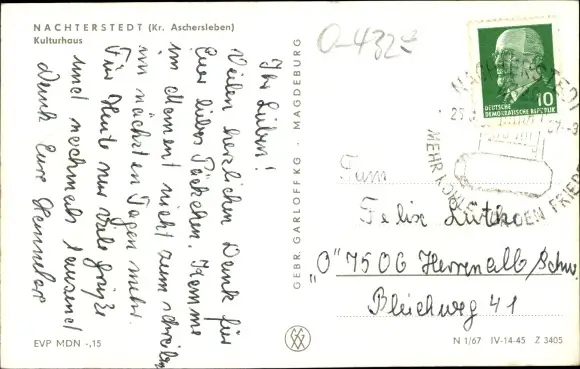 NACHTERSTEDT (Kr. Aschersleben)
Kulturhaus
Ihr Lieben!
Vielen herzlichen Dank für
Euer liebes Päckchen. Komme
im Moment nicht zum schreiben
in nächsten Tagen mehr.
Für Heute nur viele Grüße
und nochmals tausend
Dank Eure Hannelore
GEBR. GARLOFF KG · MAGDEBURG
O-432
NACHTERSTEDT
DEUTSCHE
DEMOKRATISCHE REPUBLIK
10
MEHR KOHLE
DEN FRIEDEN
Fam
Felix Lützkden
"O" 7506 Herrenalb/Schw.
Bleichweg 41
EVP MDN -,15
N 1/67 IV-14-45 Z 3405